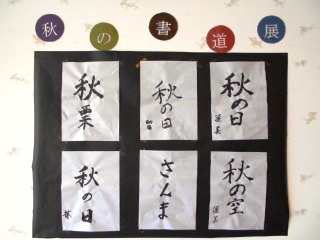 秋の書道展
秋
栗
秋の日
秋の日
蓮美
秋の日
さんま
秋の空
蓮美